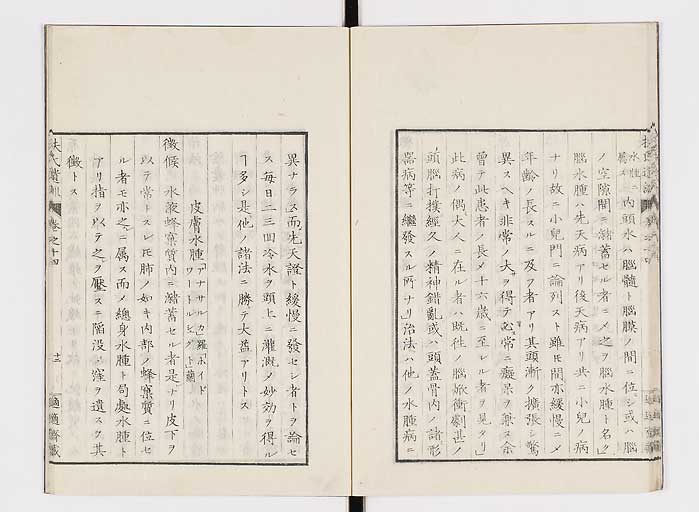 水腫ニ內頭水ハ腦髓ト腦膜ノ間ニ位シ或ハ腦
ノ空隙間ニ瀦蓄セル者ニメ之ヲ腦水腫ト名ク
腦水腫ハ先天病アリ後天病アリ共ニ小兒ノ病
ナリ故ニ小兒門ニ論列スト雖モ間亦緩慢ニメ
年齡ノ長スルニ及フ者アリ其頭漸ク擴張シ驚
異スヘキ非常ノ大ヲ得テ必常ニ癡呆ヲ兼ヌ余
曾テ此患者ノ長メ十六歲ニ至レル者ヲ見タリ」
此病ノ偶大人ニ在ル者ハ既徃ノ腦焮衝劇甚ノ
頭腦打撲經久ノ精神錯亂或ハ頭蓋骨內ノ諸形
器病等ニ繼發スル所ナリ」治法ハ他ノ水腫病ニ
異ナラス而先天證ト緩慢ニ發セシ者トヲ論セ
ス每日二三回冷水ヲ頭上ニ灌漑メ妙効ヲ得ル
ヿ多シ是他ノ諸法ニ勝テ大益アリトス
皮膚水腫「アナサルカ」羅「ホイド
ワートルシュグト」蘭
徵候 水液蜂窠質內ニ瀦蓄セル者是ナリ皮下ヲ
以テ常トスレモ肺ノ如キ內部ノ蜂窠質ニ位セ
ル者モ亦之ニ属ス而メ總身水腫ト局處水腫ト
アリ指ヲ以テ之ヲ壓スニ陷沒シ窪ヲ遺スヲ其
徵トス
扶氏遺訓
卷之十四
十二
適適齋藏